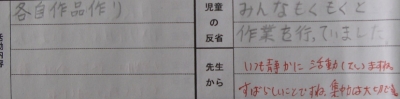 活動内容
各自作品作り
児童の反省
みんなもくもくと
作業を行っていました
先生から
いつも静かに活動していますね。
すばらしいことですね。集中は大切です。